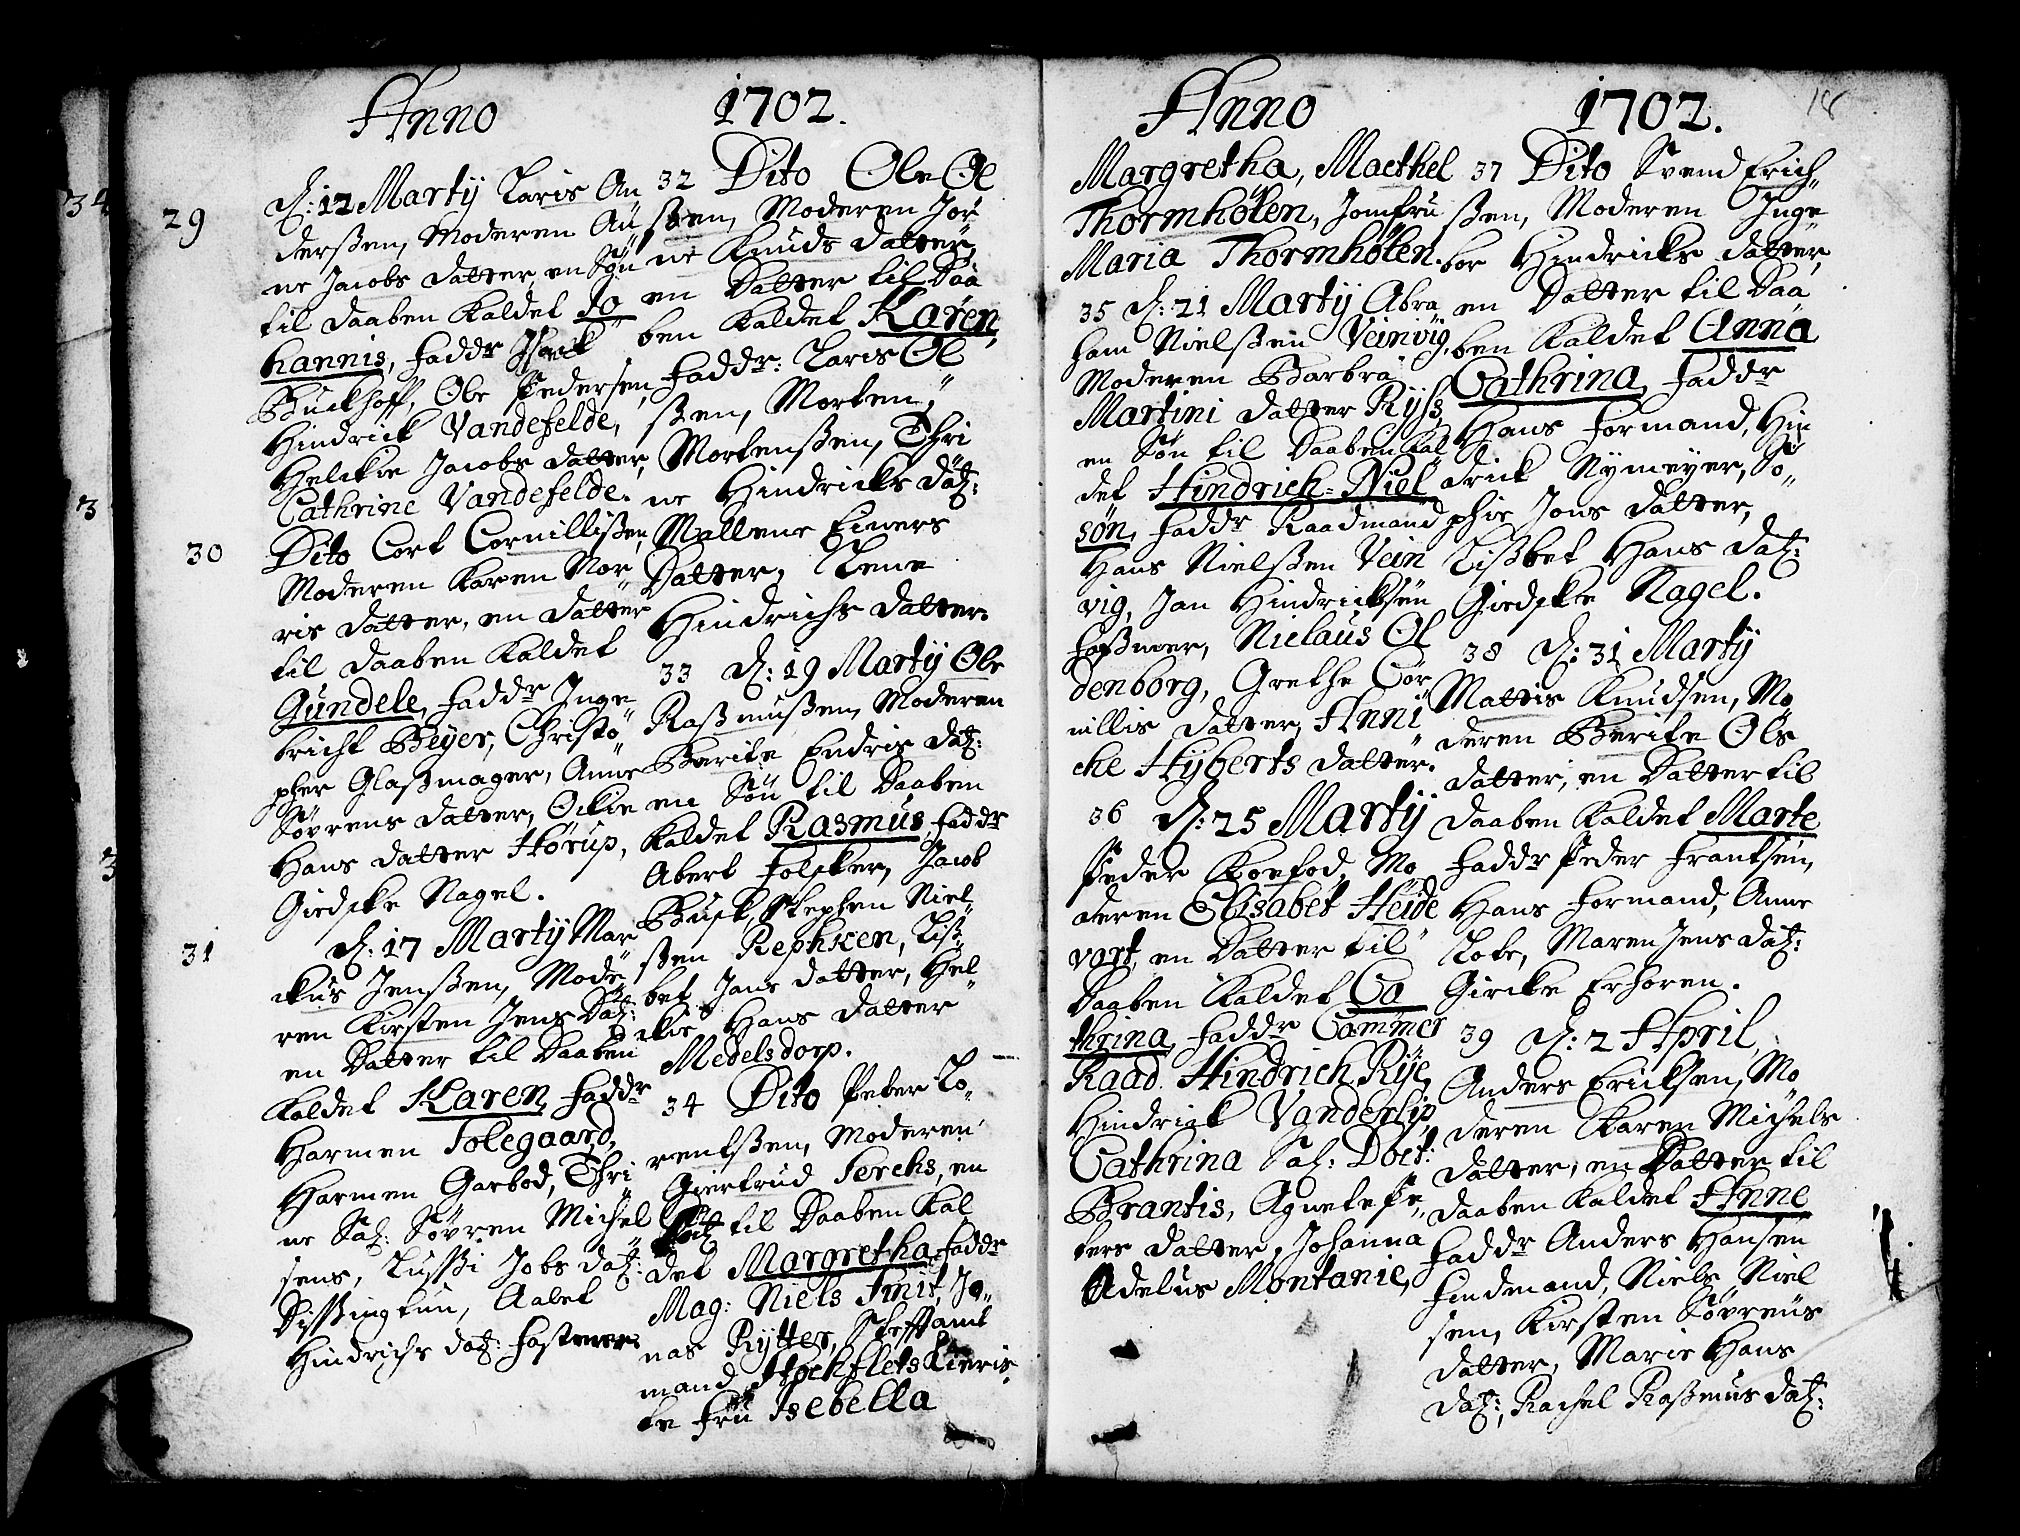 Anno 1702.
29 d: 12 Martij Laris An
derßen, Moderen An
ne Jacobs datter, en Søn
til daaben kaldet Jo
hannis, faddr
Buckhoff, Ole Pedersen,
Hindrick Vandefelde,
Helckie Jacobs datter,
Cathrine Vandefelde.
30 Dito Cort Cornillißen,
Moderen Karen Nor
ris datter, en datter
til daaben kaldet
Gundele, faddr Inge
bricht Beyer, Christo
pher Glaßmager, Anne
Sövrens datter, Ockie
Hans datter Hörup,
Giedske Nagel.
31 d: 17 Martij Mar
ckus Jenßen, Mode
ren Kirsten Jens Datz:
en Datter til Daaben
kaldet Karen, faddr
Harmen Tolegaard,
Harmen Garbod, Thri
ne Sal: Sövren Michel
sens, Lußi Jobs datz:
Dißingkun, Aabel
Hindrichs datz: Fastmer.
32 Dito Ole Ol
ßen, Moderen Jør
ne Knuds datter,
en Datter til Daa
ben kaldet Karen,
Faddr: Laris Ol
ßen, Morten
Mortenßen, Thri
ne Hindricks datz:
Mallene Einers
Datter, Lene
Hindrichs datter.
33 d: 19 Martij Ole
Raßmußen, Moderen
Berite Endris datz:
en Søn til Daaben
kaldet Rasmus, faddr
Abert Folcker, Jacob
Busch, Stephen Niel
ßen Rephsen, Liß
bet Jans datter, Hel
ckie Hans datter
Medelsdorp.
34 Dito Peter Lo
rentßen, Moderen
Giertrud Terchs, en
til Daaben kal
det Margretha, faddr
Mag: Niels Smit, Jo
nas Rytter, Skeffsamt
mand Hockflets Lieris
te Frü Isebella
Anno 1702. 18
Margretha, Maethel
Thormhölen, Jomfru
Maria Thormhölen.
35 d: 21 Martij Abra
ham Nielßen Veinvig,
Moderen Barbra
Martini datter Ryß,
en Søn til Daaben kal
det Hindrich=Niel
søn, faddr Raadmand
Hans Nielßen Vein
vig, Jan Hindricksen
Faßmer, Niclaus Ol
denborg, Grethe Cor
nillis datter, Anni
che Hyberts datter.
36 d: 25 Martij
Peder Koefod, Mo
deren Elisabet Heide
vart, en Datter til
Daaben kaldet Ca
thrina, faddr Cammer
Raad Hindrich Rije,
Hindrick Vanderlip,
Cathrina Sal: Doct:
Brantis, Agnete Pe
ters datter, Johanna
Adelus Montanie,
37 Dito Svend Erich
ßen, Moderen Inge
bor Hindricks datter,
en Datter til Daa
ben kaldet Anna
Cathrina, faddr
Hans Formand, Hin
drick Nymeyer, So
phie Jons datter,
Lißbet Hans datz:
Giedske Nagel.
38 d: 31 Martij
Mattis Knudsen, Mo
deren Berite Ols
datter, en Datter til
daaben kaldet Marte
faddr Peder Frantsen,
Hans Formand, Anne
Lote, Maren Jens datz:
Gircke Erhoren.
39 d: 2 April,
Anders Ericksen, Mo
deren Karen Michels
datter, en Datter til
daaben kaldet Anne
faddr Anders Hansen
Findmand, Niels Niel
sen, Kirsten Sövrens
datter, Marie Hans
datz:, Rachel Raßmus datz: